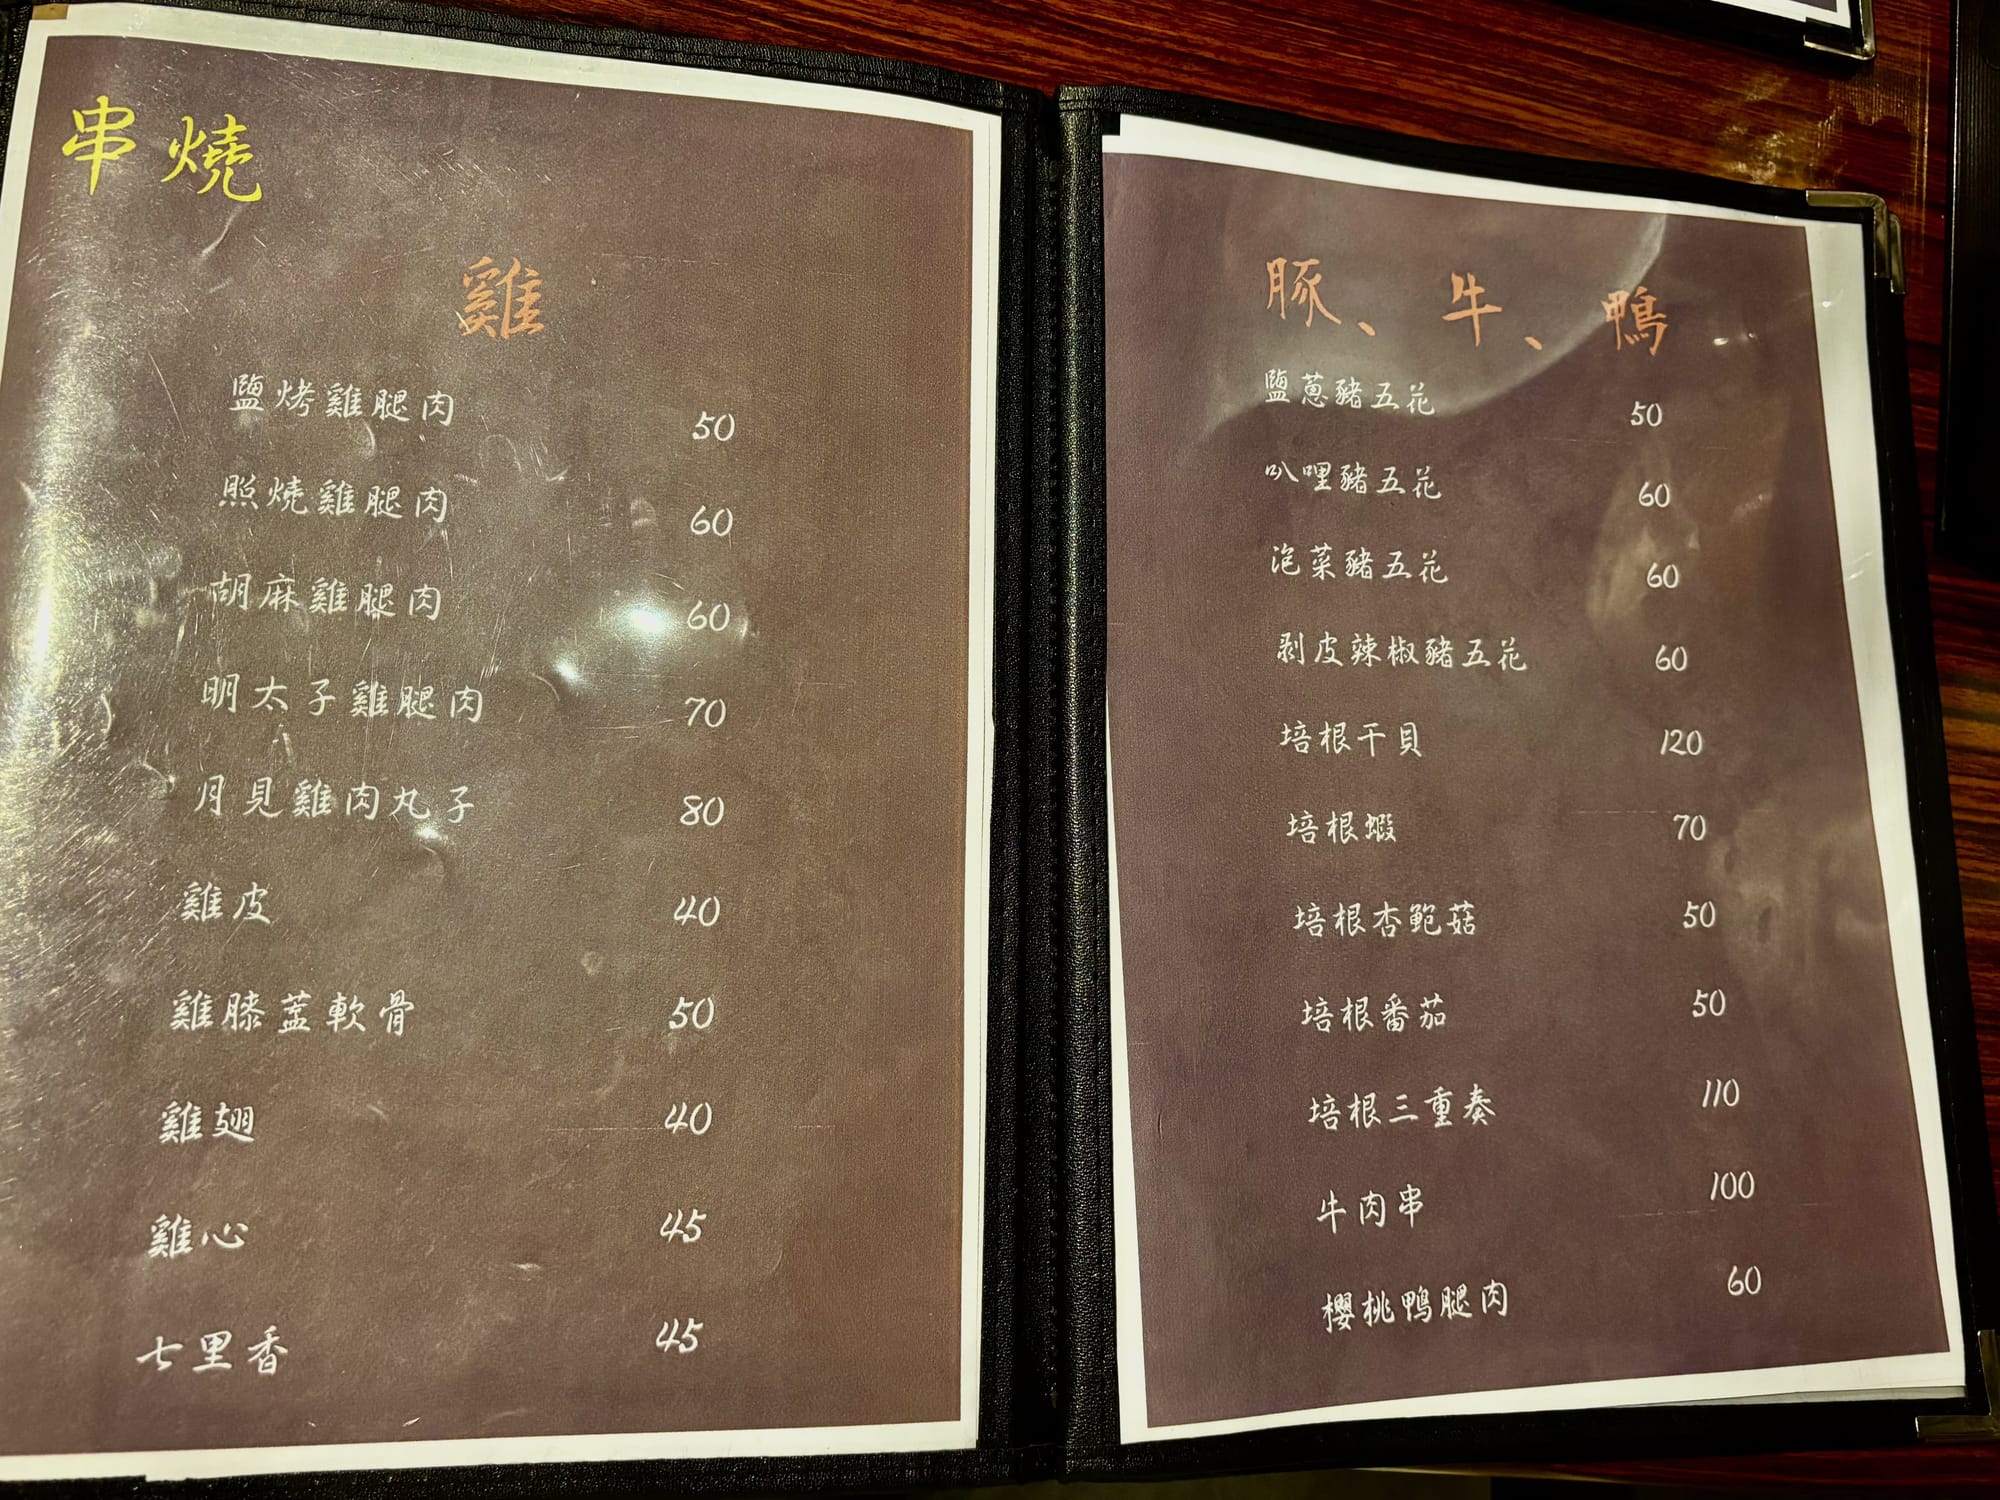 串燒
雞
鹽烤雞腿肉 50
照燒雞腿肉 60
胡麻雞腿肉 60
明太子雞腿肉 70
月見雞肉丸子 80
雞皮 40
雞膝蓋軟骨 50
雞翅 40
雞心 45
七里香 45
豚、牛、鴨
鹽蔥豬五花 50
叭哩豬五花 60
泡菜豬五花 60
剥皮辣椒豬五花 60
培根干貝 120
培根蝦 70
培根杏鮑菇 50
培根番茄 50
培根三重奏 110
牛肉串 100
櫻桃鴨腿肉 60